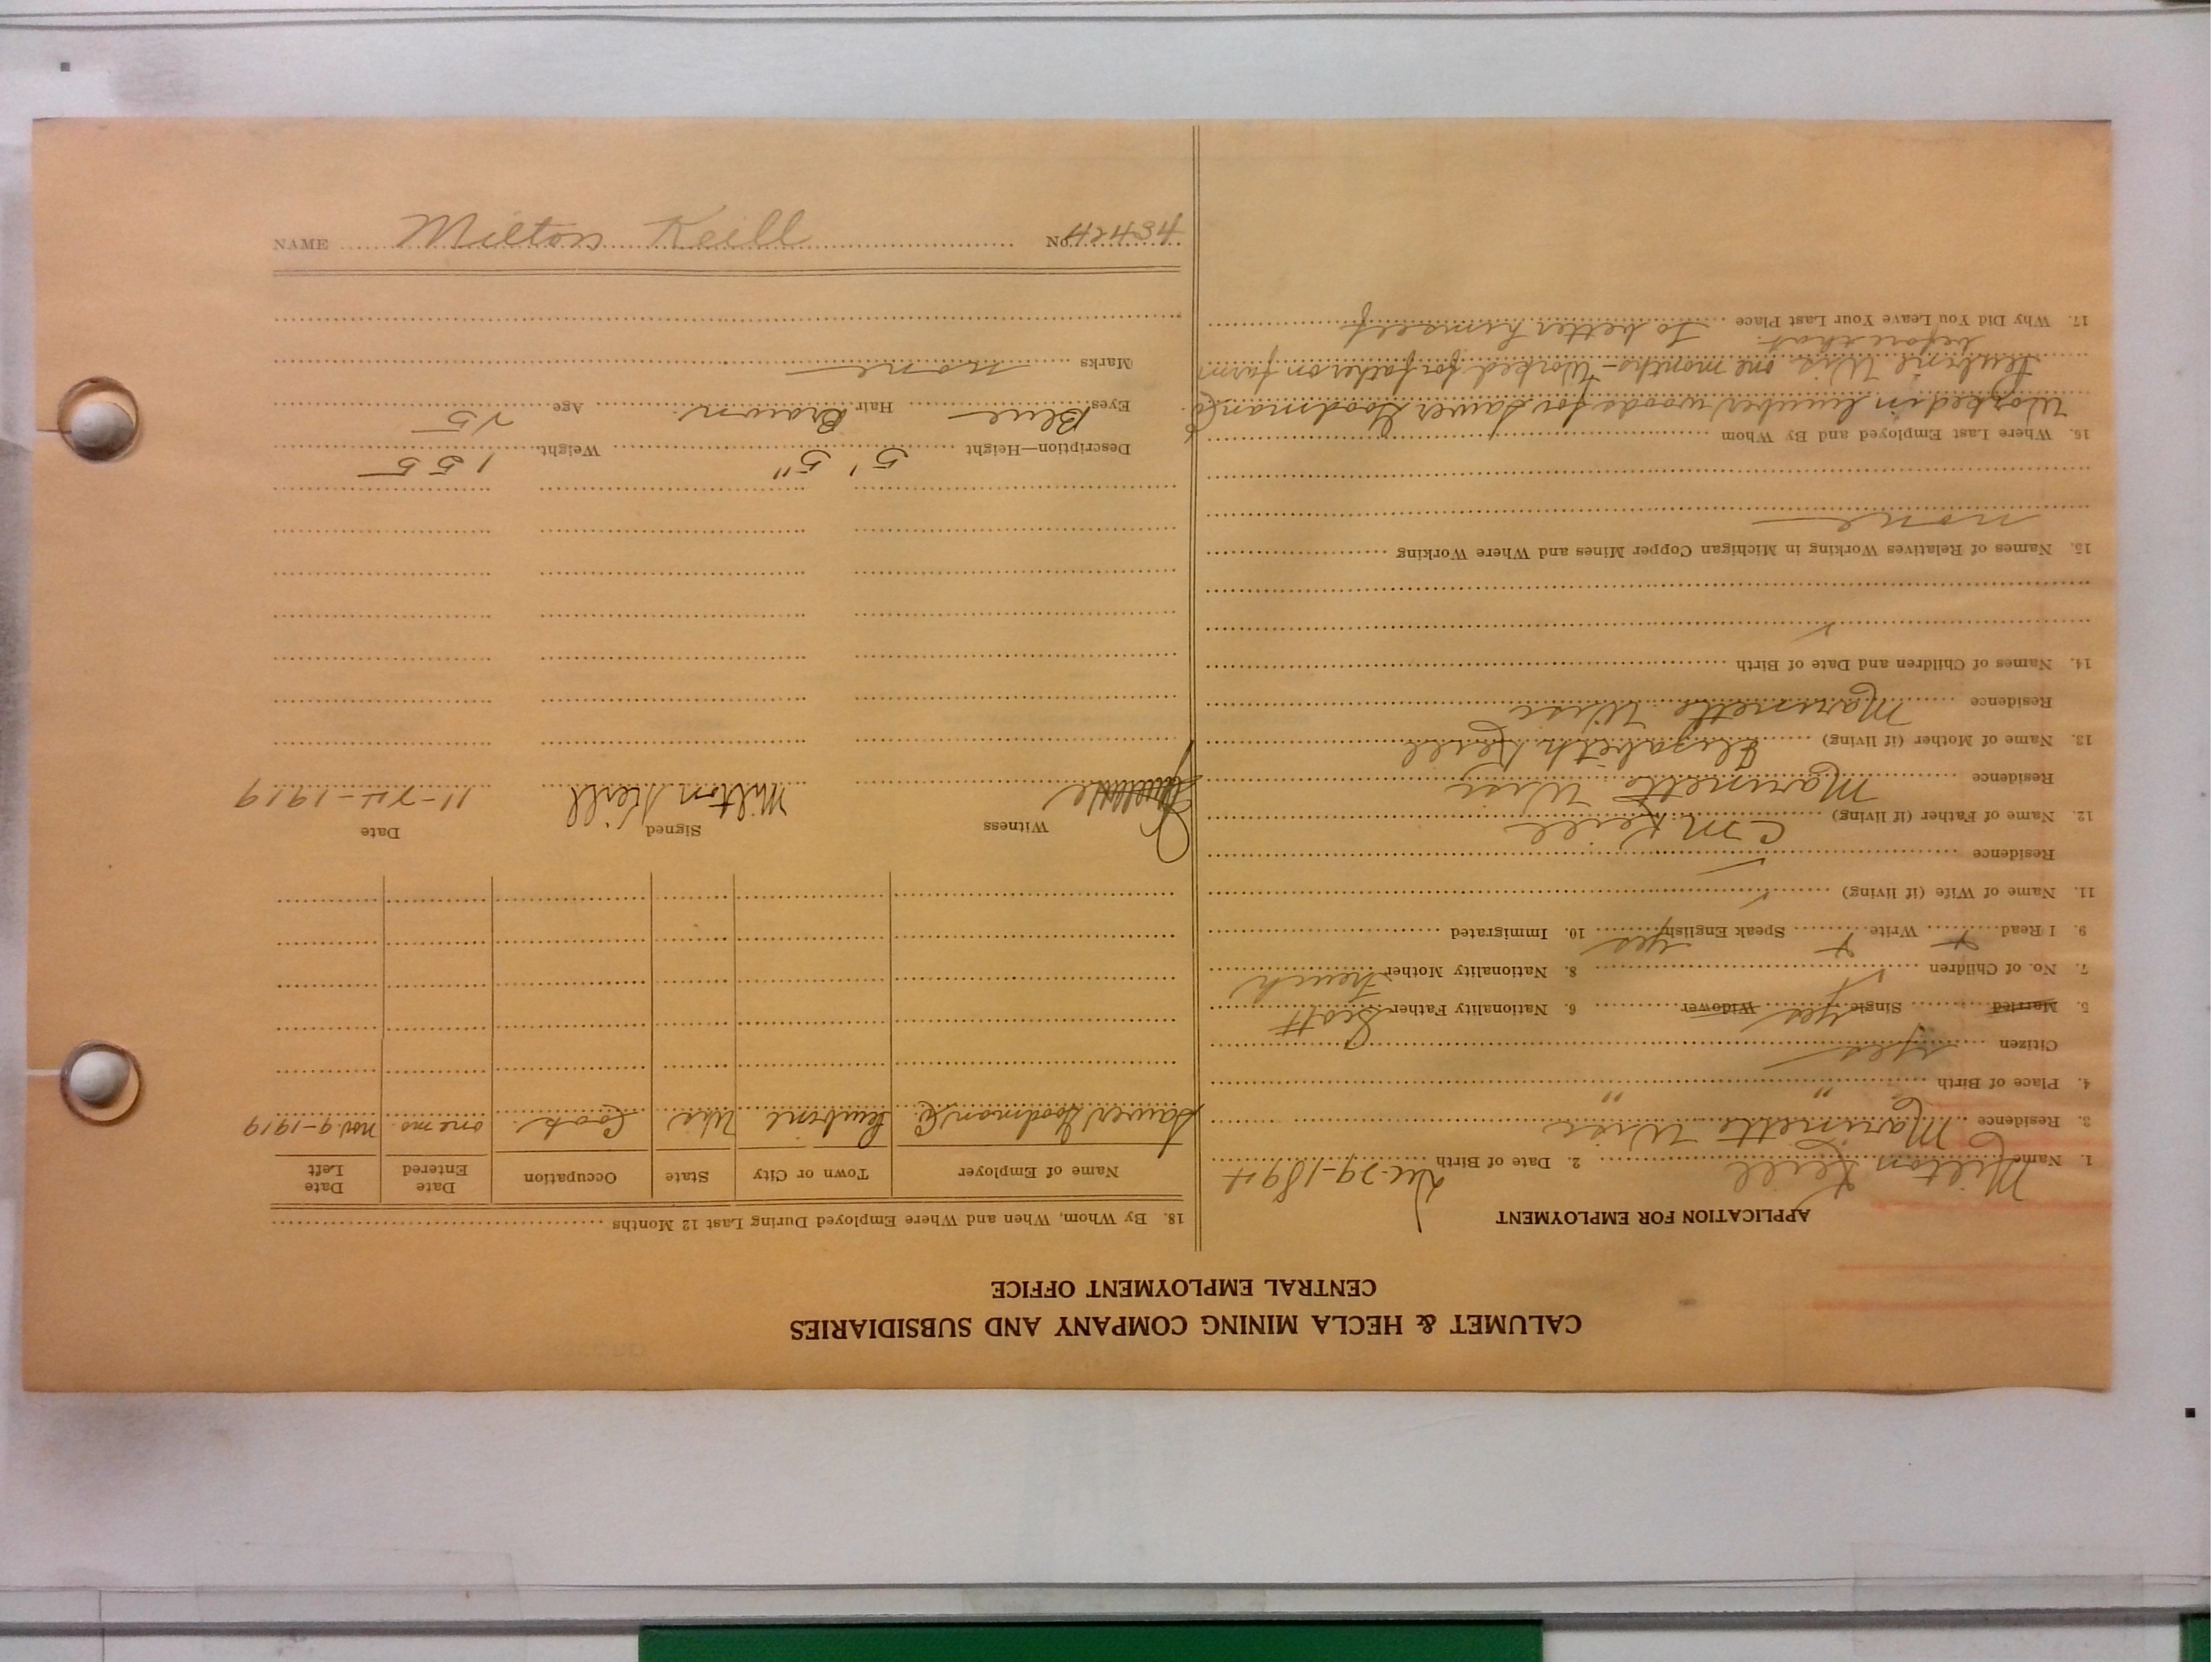 CALUMET & HECLA MINING COMPANY AND SUBSIDIARIES
CENTRAL EMPLOYMENT OFFICE
APPLICATION FOR EMPLOYMENT
1. Name Milton Keill 2. Date of Birth Dec. 29-1894
3. Residence Marinette Wisc
4. Place of Birth " "
Citizen yes
5. Married Single yes Widower 6. Nationality Father Scott
7. No. of Children ✓ 8. Nationality Mother French
9. I Read Write Speak English yes 10. Immigrated
11. Name of Wife (if living) ✓
Residence
12. Name of Father (if living) C M Keill
Residence Marinette Wisc
13. Name of Mother (if living) Elizabeth Keill
Residence Marinette Wisc
14. Names of Children and Date of Birth
✓
15. Names of Relatives Working in Michigan Copper Mines and Where Working
none
16. Where Last Employed and By Whom
Worked in lumber woods for Sawer Goodman Co.
Wis. one months - Worked for father on farm
before that.
17. Why Did You Leave Your Last Place To better himself
18. By Whom, When and Where Employed During Last 12 Months
Name of Employer Town or City State Occupation Date Entered Date Left
Sawer Goodman Co. Wis. Cook one mo. Nov. 9-1919
Witness Signed Date
Milton Keill 11-24-1919
Description—Height 5' 5" Weight 155
Eyes Blue Hair Brown Age 25
Marks none
NAME Milton Keill No. 42434